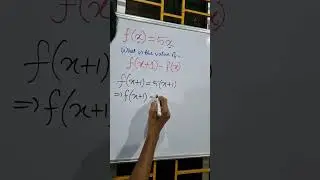 f(x) = 5x
What is the value of :-
f(x+1) - f(x)
f(x+1) = 5(x+1)
⇒ f(x+1) =